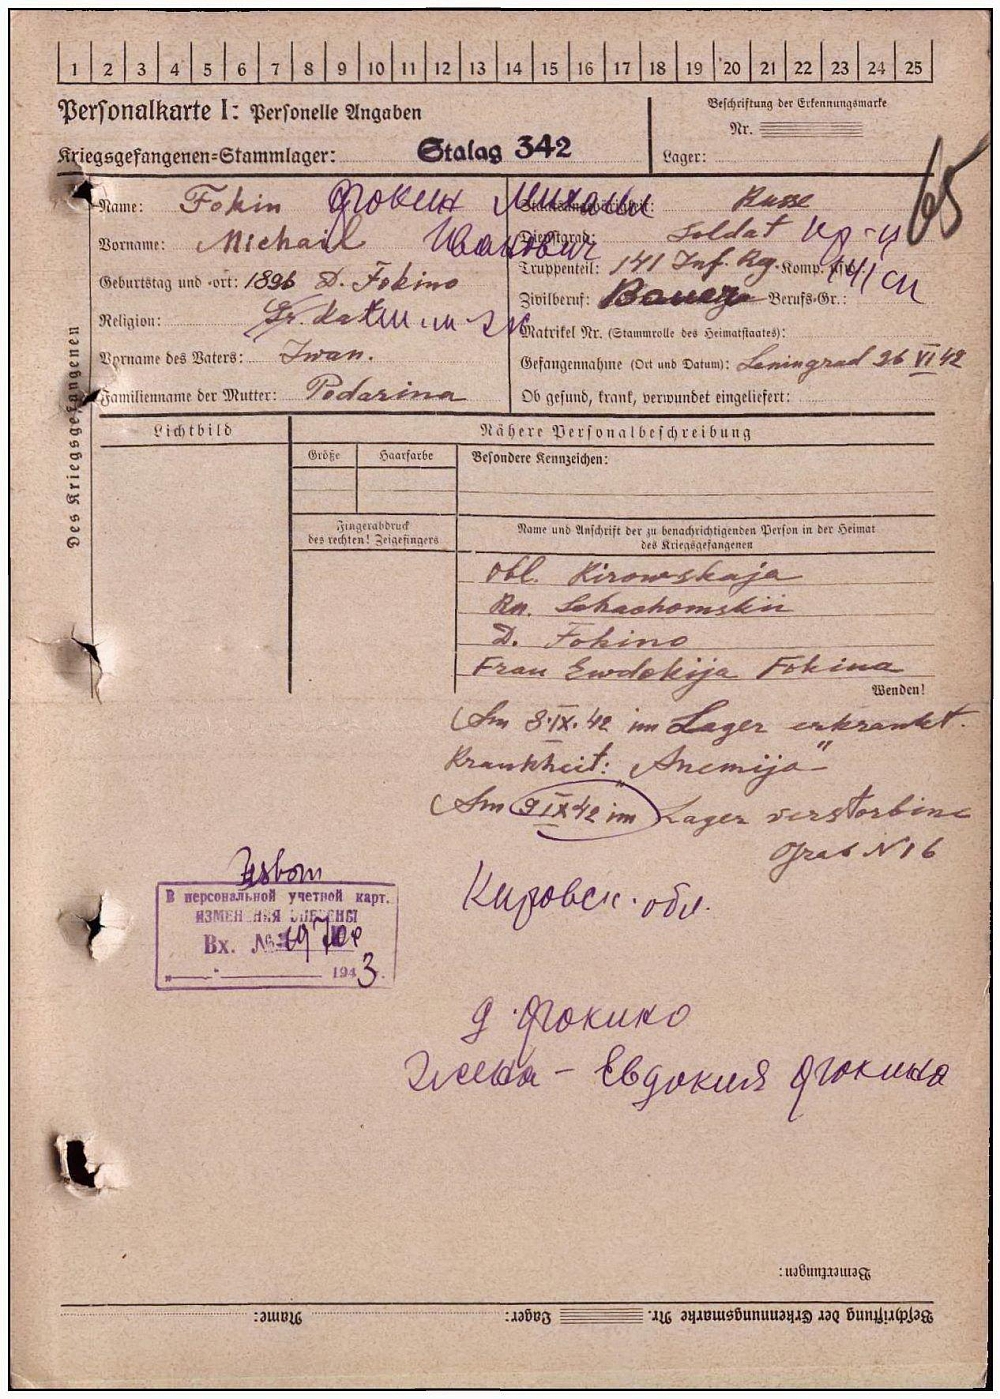 1 2 3 4 5 6 7 8 9 10 11 12 13 14 15 16 17 18 19 20 21 22 23 24 25
Personalkarte I: Personelle Angaben
Beschriftung der Erkennungsmarke
Nr.
Kriegsgefangenen=Stammlager: Stalag 342
Lager:
65
Des Kriegsgefangenen
Name: Fokin Фокин Михаил
Staatsangehörigkeit: Russe
Vorname: Michail Иванович
Dienstgrad: Soldat кр-ц
Geburtstag und -ort: 1896 D. Fokino
Truppenteil: 141 Inf. Rg. Komp. usw.: 141 сп
Zivilberuf: Bauer Berufs-Gr.:
Religion: Gr. kat
Matrikel Nr. (Stammrolle des Heimatstaates):
Vorname des Vaters: Iwan.
Gefangennahme (Ort und Datum): Leningrad 26 VI 42
Familienname der Mutter: Podarina
Ob gesund, krank, verwundet eingeliefert:
Lichtbild
Nähere Personalbeschreibung
Größe
Haarfarbe
Besondere Kennzeichen:
Fingerabdruck
des rechten! Zeigefingers
Name und Anschrift der zu benachrichtigenden Person in der Heimat
des Kriegsgefangenen
Obl. Kirowskaja
Ra. Schachomskii
D. Fokino
Frau Ewdokija Fokina
Wenden!
Am 8.IX.42 im Lager erkrankt.
Krankheit: „Anemija"
Am 9 IX 42 im Lager verstorbine
Grab N 16
Кировск. обл.
В персональной учетной карт.
ИЗМЕНЕНИЯ ВНЕСЕНЫ
Вх. №
1943.
д. Фокино
Жена - Евдокия Фокина
Bemerkungen:
Beschriftung der Erkennungsmarke Nr. Lager: Name: